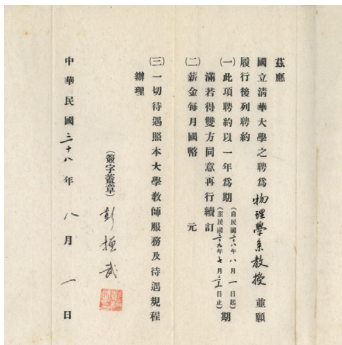 茲應
國立清華大學之聘為物理學系教授 並願
履行後列聘約
(一)此項聘約以一年為期(自民國三十八年八月一日起至民國三十九年七月三十一日止)期
滿若得雙方同意再行續訂
(二)薪金每月國幣 元
(三)一切待遇照本大學教師服務及待遇規程
辦理
(簽字蓋章)彭桓武
中華民國三十八年八月一日